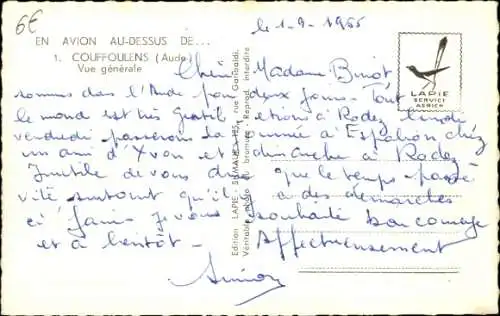 6€
le 1-9-1965
EN AVION AU-DESSUS DE...
1. COUFFOULENS (Aude)
Vue générale
Chère Madame Binot
sommes dans l'Aude pour deux jours - Tout
le monde est très gentil étions à Rodez lundi
vendredi passerons la journée à Espalion chez
un ami d'Yvon et dimanche à Rodez
Inutile de vous dire que le temps passe
vite surtout qu'il y a des démarches
ici Janine je vous souhaite bon courage
et à bientôt - Affectueusement
Edition LAPIE - St-MAUR - rue Garibaldi.
Véritable photo au bromure - Reprod. interdite
LAPIE
SERVICE
AERIEN